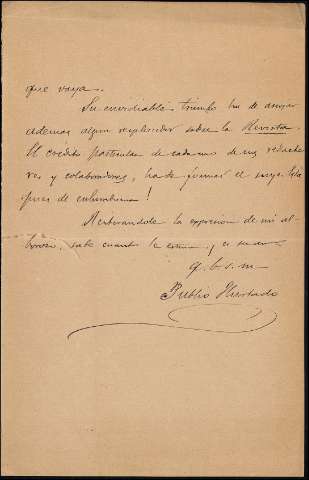 que vaya.
Su envidiable triunfo ha de arrojar
ademas algun resplandor sobre la Revista.
El credito particular de cada uno de sus redacto
res y colaboradores, ha de formar el suyo
de columbrar!
Reiterandole la expresion de mi al-
borozo, sabe cuanto le estima, y es suyo
q. b. s. m.
Publio Hurtado